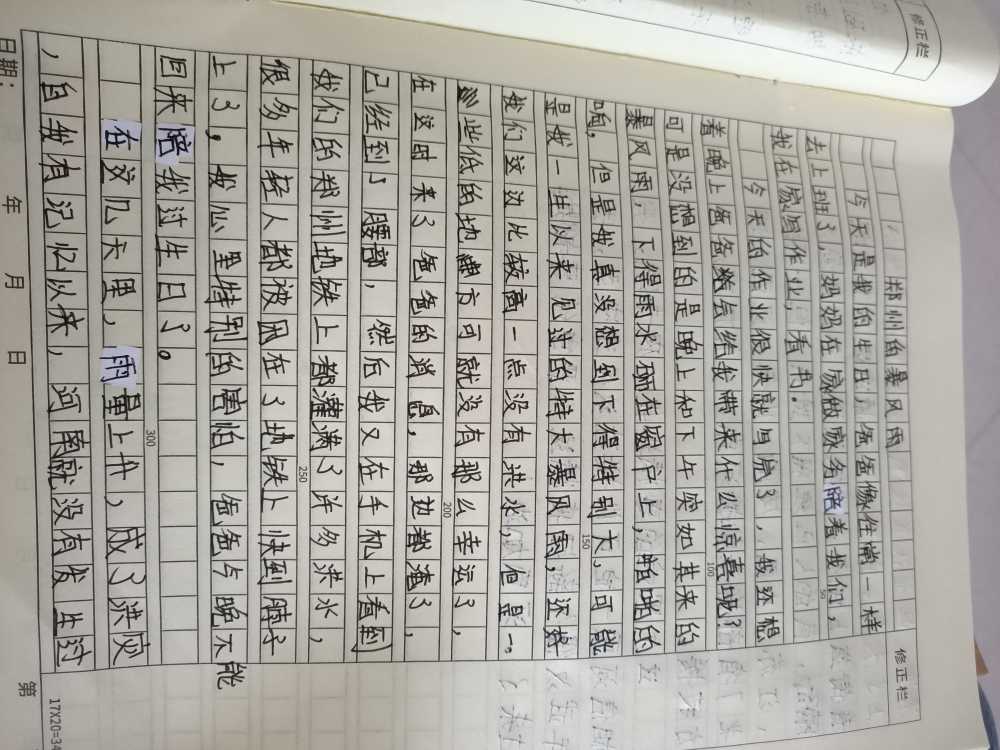 郑州的暴风雨
今天是我的生日，爸爸像往常一样
去上班了，妈妈在家做家务陪着我们，
我在家写作业，看书。
今天的作业很快就写完了，我还想
着晚上爸爸给我带来什么惊喜呢？
可是没想到的是晚上和下午突如其来的
暴风雨，下得雨水砸在窗户上，啪啪的
响，但是我真没想到下得特别大，可能
是我一生以来见过的特大暴风雨，还好
我们这边比较高一点没有洪水，但是一
些低的地方可就没有那么幸运了，
在这时来了爸爸的消息，那边都淹了，
已经到了腰部，然后我又在手机上看到
我们的郑州地铁上都灌满了许多洪水，
很多年轻人都被困在了地铁上快到脖子
上了，我心里特别的害怕，爸爸今晚不能
回来陪我过生日了。
在这几天里，雨量上升，成了洪灾
，自我有记忆以来，河南就没有发生过
修正栏
修正栏
50
100
150
200
250
300
日期：
年
月
日
第
17X20=34